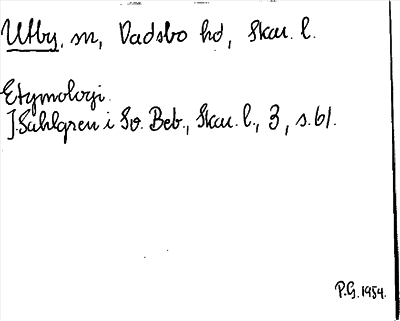 Utby, sn, Vadsbo hd, Skar. l.
Etymologi.
J. Sahlgren i Sv. Beb., Skar. l., 3, s. 61.
P.G. 1954.